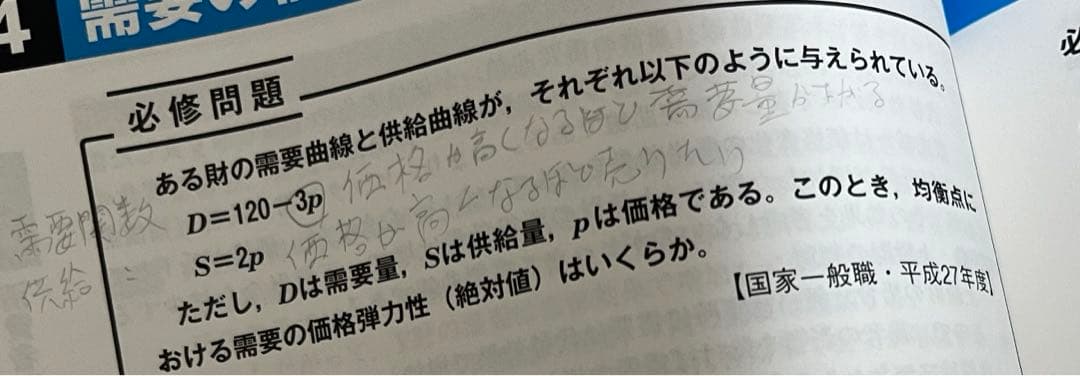 4 需要の
必修問題
ある財の需要曲線と供給曲線が,それぞれ以下のように与えられている。
価格が高くなるほど需要量が
需要関数 D=120-3p
供給 S=2p 価格が高くなるほど売り
ただし,Dは需要量,Sは供給量,pは価格である。このとき,均衡点に
おける需要の価格弾力性(絶対値)はいくらか。
【国家一般職・平成27年度】
必